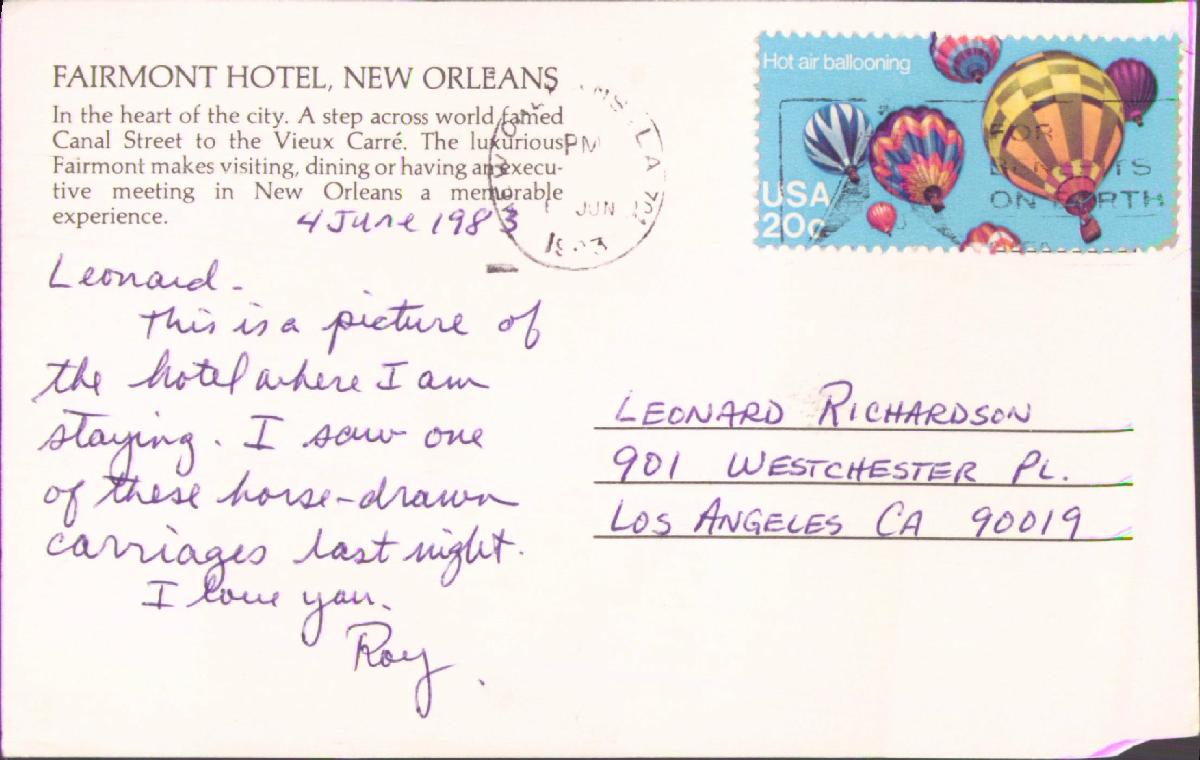 FAIRMONT HOTEL, NEW ORLEANS
In the heart of the city. A step across world famed
Canal Street to the Vieux Carré. The luxurious
Fairmont makes visiting, dining or having an execu-
tive meeting in New Orleans a memorable
experience.
4 June 1983
Leonard -
This is a picture of
the hotel where I am
staying. I saw one
of these horse-drawn
carriages last night.
I love you.
Roy
PM
JUN
Hot air ballooning
USA
20c
FOR
ON
LEONARD RICHARDSON
901 WESTCHESTER PL.
LOS ANGELES CA 90019